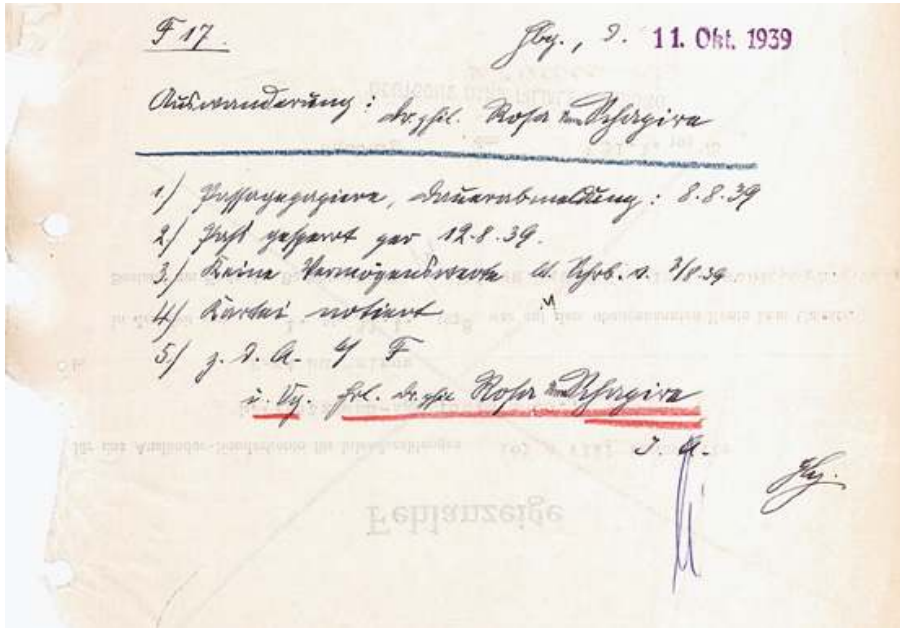 F 17.
Hbg., d. 11. Okt. 1939
Auswanderung: Dr. phil. Rosa Schapire
1./ Passagepapiere, Dauerabmeldung: 8.8.39
2./ Paß gesperrt per 12.8.39.
3./ Keine Vermögenswerte lt. Schrb. v. 3/8.39
4./ Kartei notiert
5./ z. d. A. F
u. Vg. Frl. Dr. phil. Rosa Schapire
I. A.
Fehlanzeige